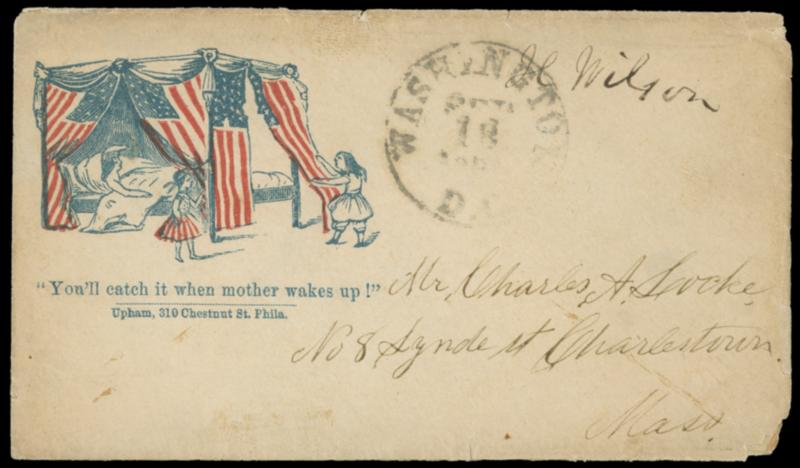 WASHINGTON
SEP
18
D.C.
H Wilson
"You'll catch it when mother wakes up!"
Upham, 310 Chestnut St. Phila.
Mr, Charles, A. Locke,
No 8 Lynde st Charlestown.
Mass.